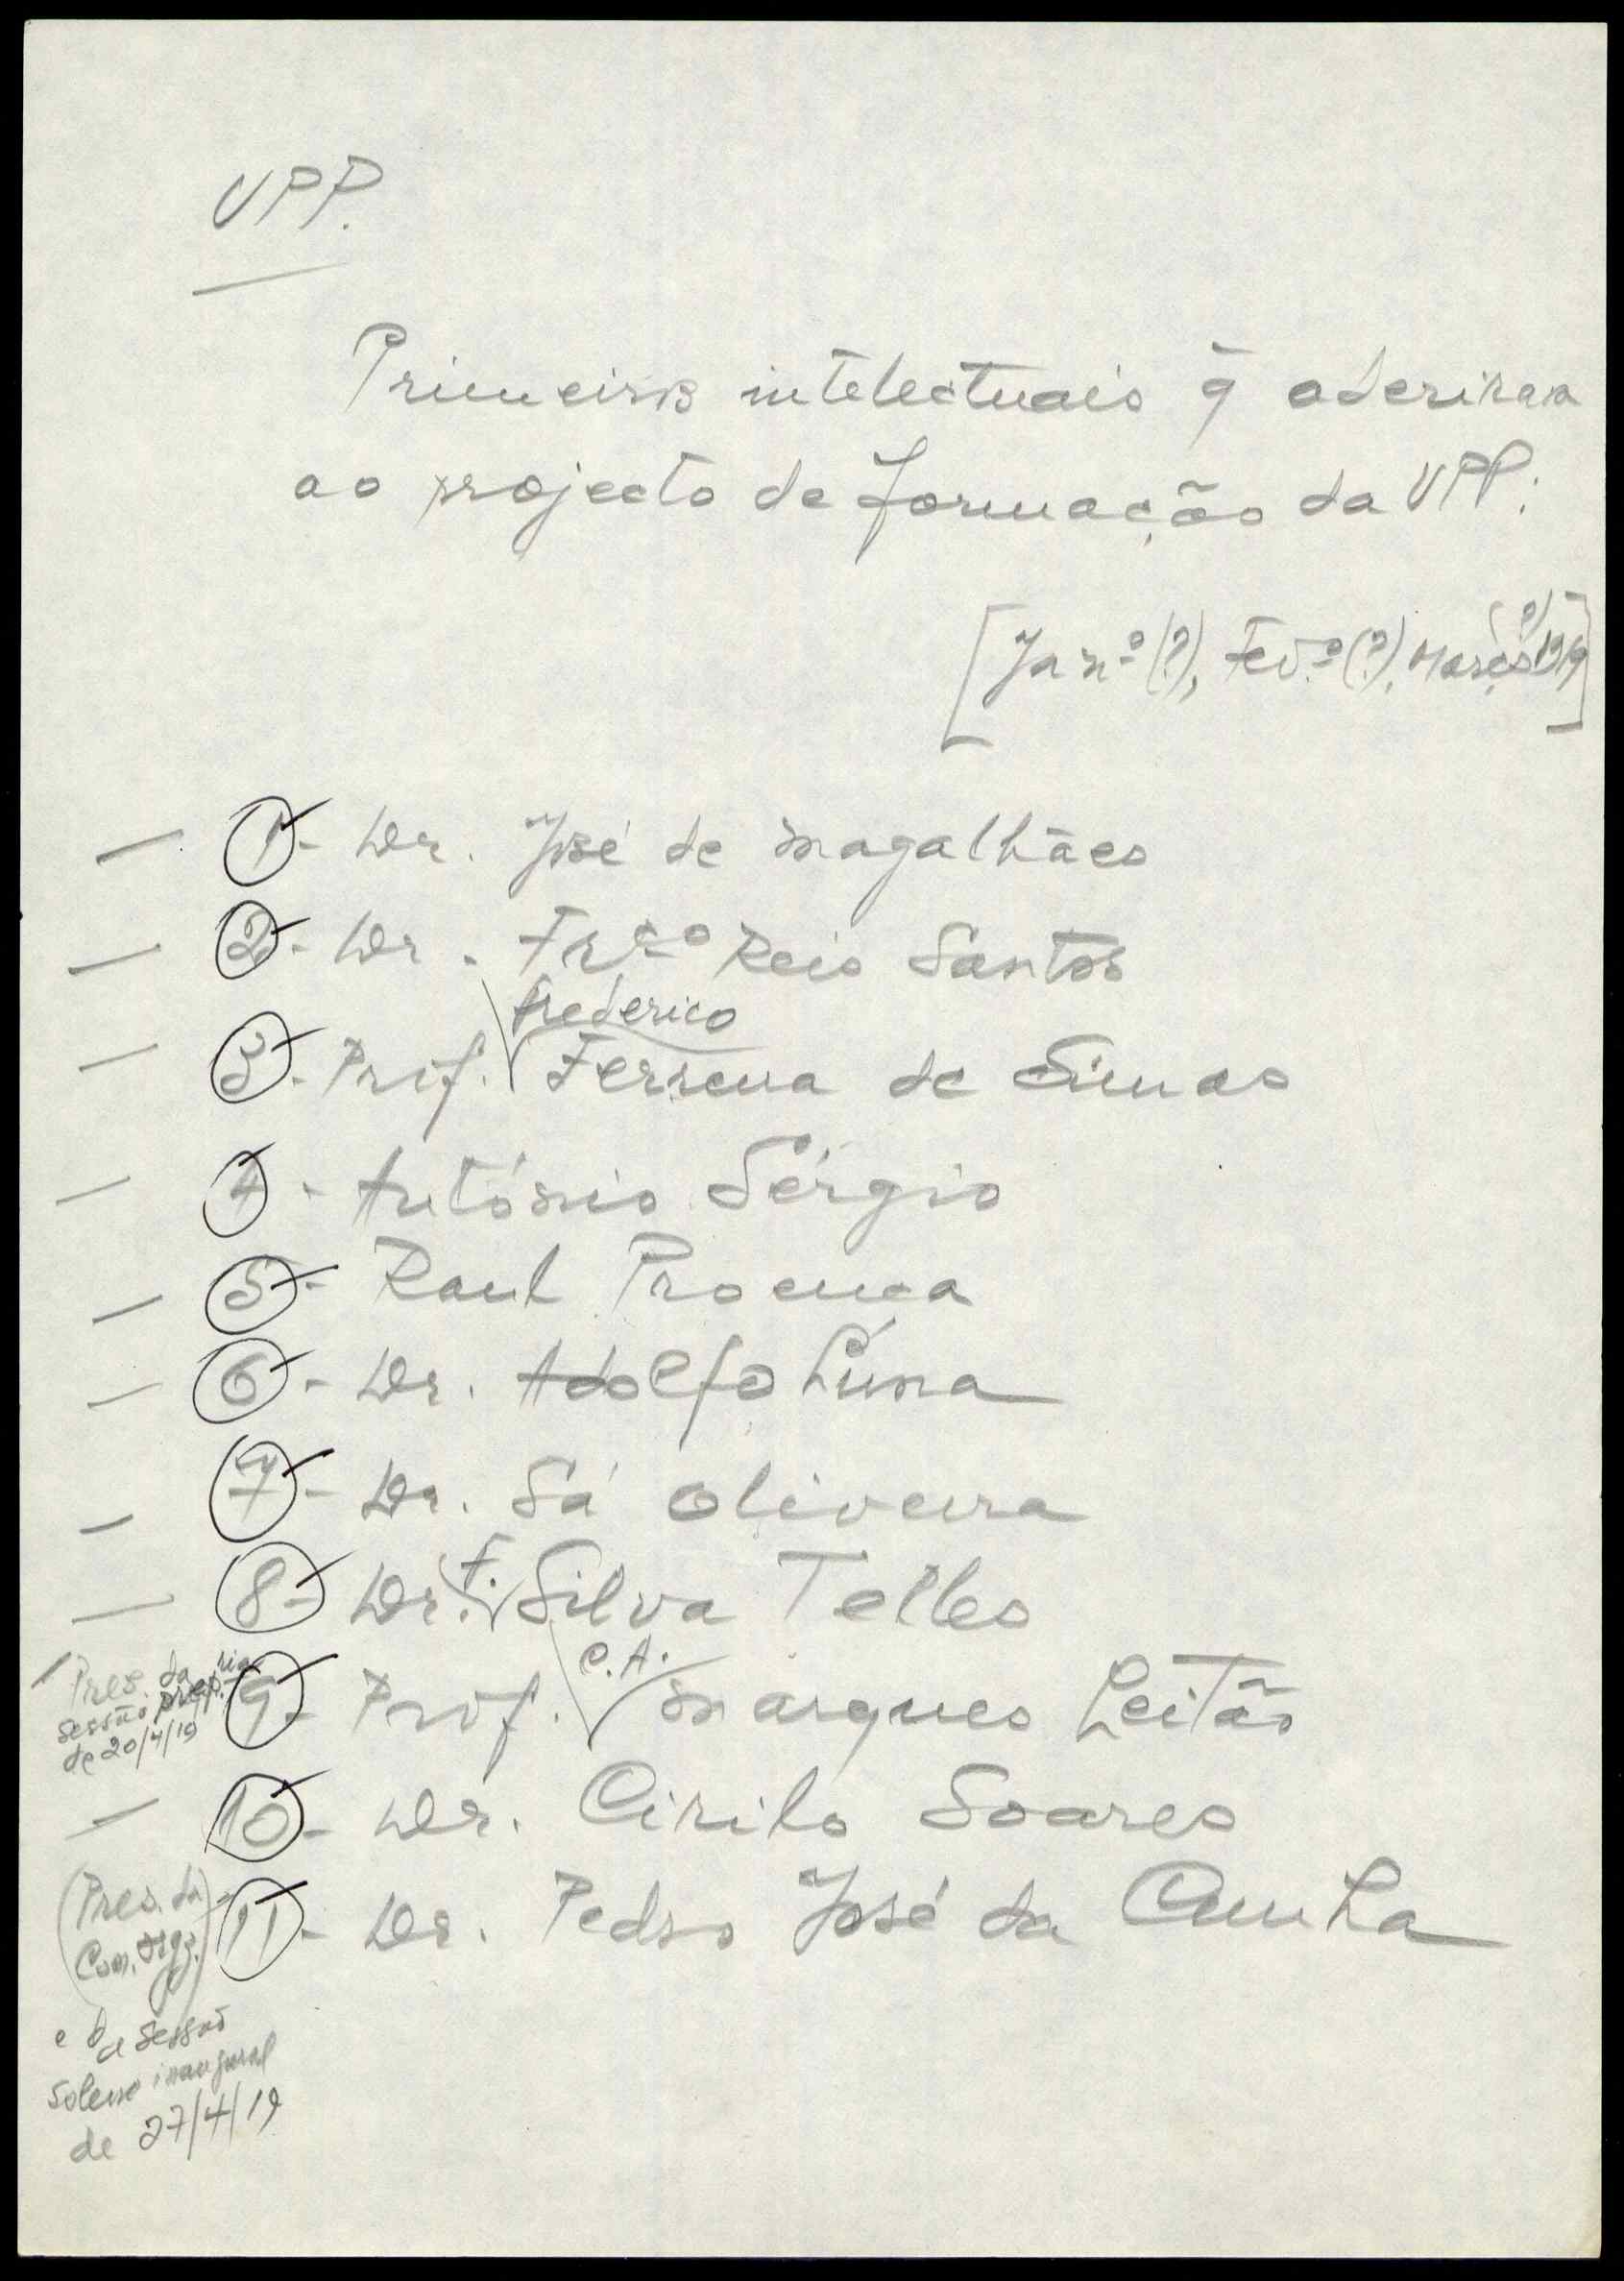 UPP.
Primeiros intelectuais q̃ aderiram
ao projecto de formação da UPP.
[Jan.º (?), Fev.º (?), Março (?) 1919]
— 1 - Dr. José de Magalhães
— 2 - Dr. Fr.co Reis Santos
— 3 - Prof. Frederico Ferreira de Simas
— 4 - António Sérgio
— 5 - Raul Proença
— 6 - Dr. Adolfo Lima
— 7 - Dr. Sá Oliveira
— 8 - Dr. F. Silva Telles
— 9 - Prof. C.A. Marques Leitão
Pres. da
sessão prep.ria
de 20/4/19
— 10 - Dr. Cirilo Soares
11 - Dr. Pedro José da Cunha
(Pres. da
Com. Orgz.)
e da sessão
solene inaugural
de 27/4/19